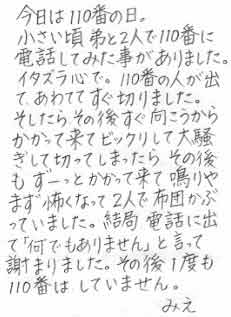 今日は110番の日。
小さい頃 弟と2人で110番に
電話してみた事がありました。
イタズラ心で。110番の人が出
て、あわててすぐ切りました。
そしたら その後すぐ向こうから
かかって来てビックリして大騒
ぎして切ってしまったら その後
も ずーっとかかって来て 鳴りや
まず 怖くなって2人で布団かぶ
っていました。結局 電話に出
て「何でもありません」と言って
謝まりました。その後 1度も
110番は していません。
みえ